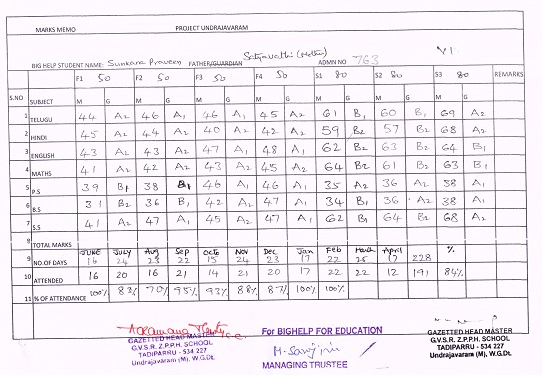 MARKS MEMO PROJECT UNDRAJAVARAM
BIG HELP STUDENT NAME: Sunkara Praveen FATHER/GUARDIAN Satyavathi (Mother) ADMN NO 763 VI
F1 50 F2 50 F3 50 F4 50 S1 80 S2 80 S3 80 REMARKS
S.NO SUBJECT M G M G M G M G M G M G M G
1 TELUGU 44 A2 46 A1 46 A1 45 A2 61 B1 60 B1 69 A2
2 HINDI 45 A2 44 A2 40 A2 42 A2 59 B2 57 B2 68 A2
3 ENGLISH 43 A2 43 A2 47 A1 48 A1 62 B2 63 B2 64 B1
4 MATHS 41 A2 42 A2 43 A2 45 A2 64 B2 61 B2 63 B1
5 P.S 39 B1 38 B1 46 A1 46 A1 35 A2 36 A2 38 A1
6 B.S 31 B2 36 B1 42 A2 47 A1 34 B1 36 A2 38 A1
7 S.S 41 A2 47 A1 45 A2 47 A1 62 B1 64 B2 68 A2
8 TOTAL MARKS
JUNE JULY Aug Sep Octo Nov Dec Jan Feb March April %
9 NO.OF DAYS 16 24 23 22 15 24 23 17 22 17 228
10 ATTENDED 16 20 16 21 14 21 20 17 22 22 12 191 84%
11 % OF ATTENDANCE 100% 83% 70% 95% 93% 88% 87% 100% 100%
GAZETTED HEAD MASTER
G.V.S.R. Z.P.P.H. SCHOOL
TADIPARRU - 534 227
Undrajavaram (M), W.G.Dt.
For BIGHELP FOR EDUCATION
MANAGING TRUSTEE
GAZETTED HEAD MASTER
G.V.S.R. Z.P.P.H. SCHOOL
TADIPARRU - 534 227
Undrajavaram (M), W.G.Dt.